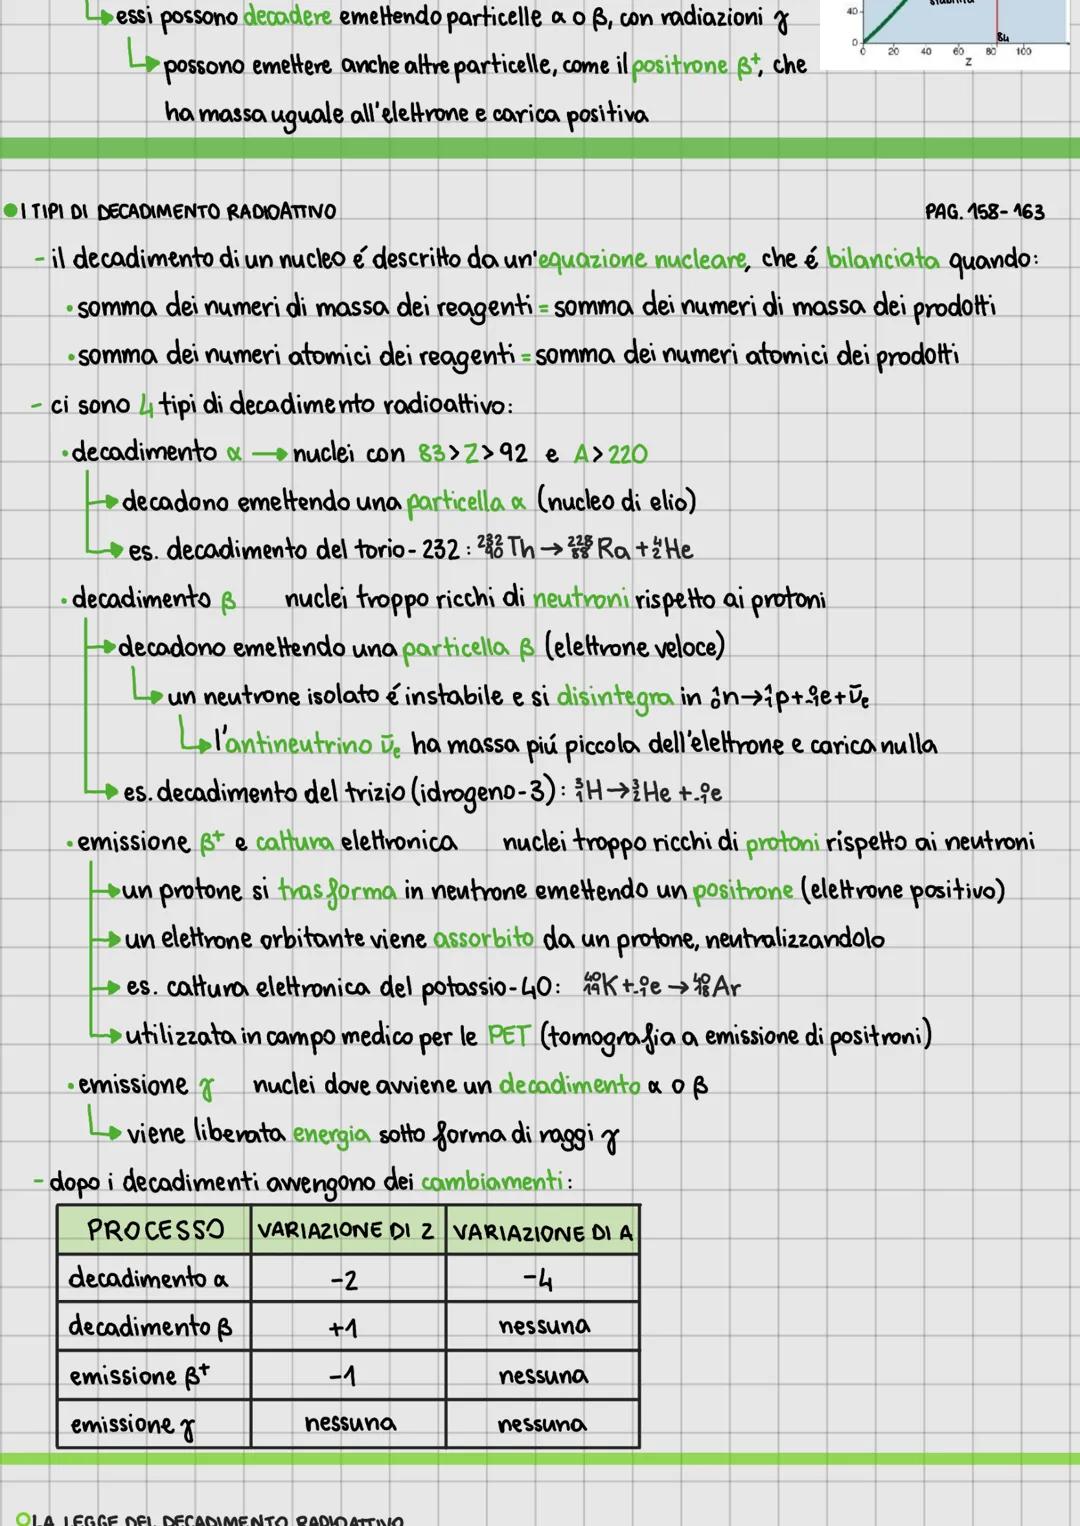 essi possono decadere emettendo particelle α o β, con radiazioni γ
possono emettere anche altre particelle, come il positrone β⁺, che
ha massa uguale all'elettrone e carica positiva
40
0
84
0 20 40 60 80 100
Z
•I TIPI DI DECADIMENTO RADIOATTIVO PAG. 158-163
- il decadimento di un nucleo é descritto da un'equazione nucleare, che é bilanciata quando:
•somma dei numeri di massa dei reagenti = somma dei numeri di massa dei prodotti
•somma dei numeri atomici dei reagenti = somma dei numeri atomici dei prodotti
- ci sono 4 tipi di decadimento radioattivo:
•decadimento α → nuclei con 83>Z>92 e A>220
decadono emettendo una particella α (nucleo di elio)
es. decadimento del torio-232: ²³²₉₀Th → ²²⁸₈₈Ra + ⁴₂He
•decadimento β nuclei troppo ricchi di neutroni rispetto ai protoni
decadono emettendo una particella β (elettrone veloce)
un neutrone isolato é instabile e si disintegra in ¹₀n→¹₁p+⁰₋₁e+ν̄ₑ
l'antineutrino ν̄ₑ ha massa piú piccola dell'elettrone e carica nulla
es. decadimento del trizio (idrogeno-3): ³₁H→³₂He +⁰₋₁e
•emissione β⁺ e cattura elettronica nuclei troppo ricchi di protoni rispetto ai neutroni
un protone si trasforma in neutrone emettendo un positrone (elettrone positivo)
un elettrone orbitante viene assorbito da un protone, neutralizzandolo
es. cattura elettronica del potassio-40: ⁴⁰₁₉K +⁰₋₁e → ⁴⁰₁₈Ar
utilizzata in campo medico per le PET (tomografia a emissione di positroni)
•emissione γ nuclei dove avviene un decadimento α o β
viene liberata energia sotto forma di raggi γ
- dopo i decadimenti avvengono dei cambiamenti:
PROCESSO VARIAZIONE DI Z VARIAZIONE DI A
decadimento α -2 -4
decadimento β +1 nessuna
emissione β⁺ -1 nessuna
emissione γ nessuna nessuna
LA LEGGE DEL DECADIMENTO RADIOATTIVO